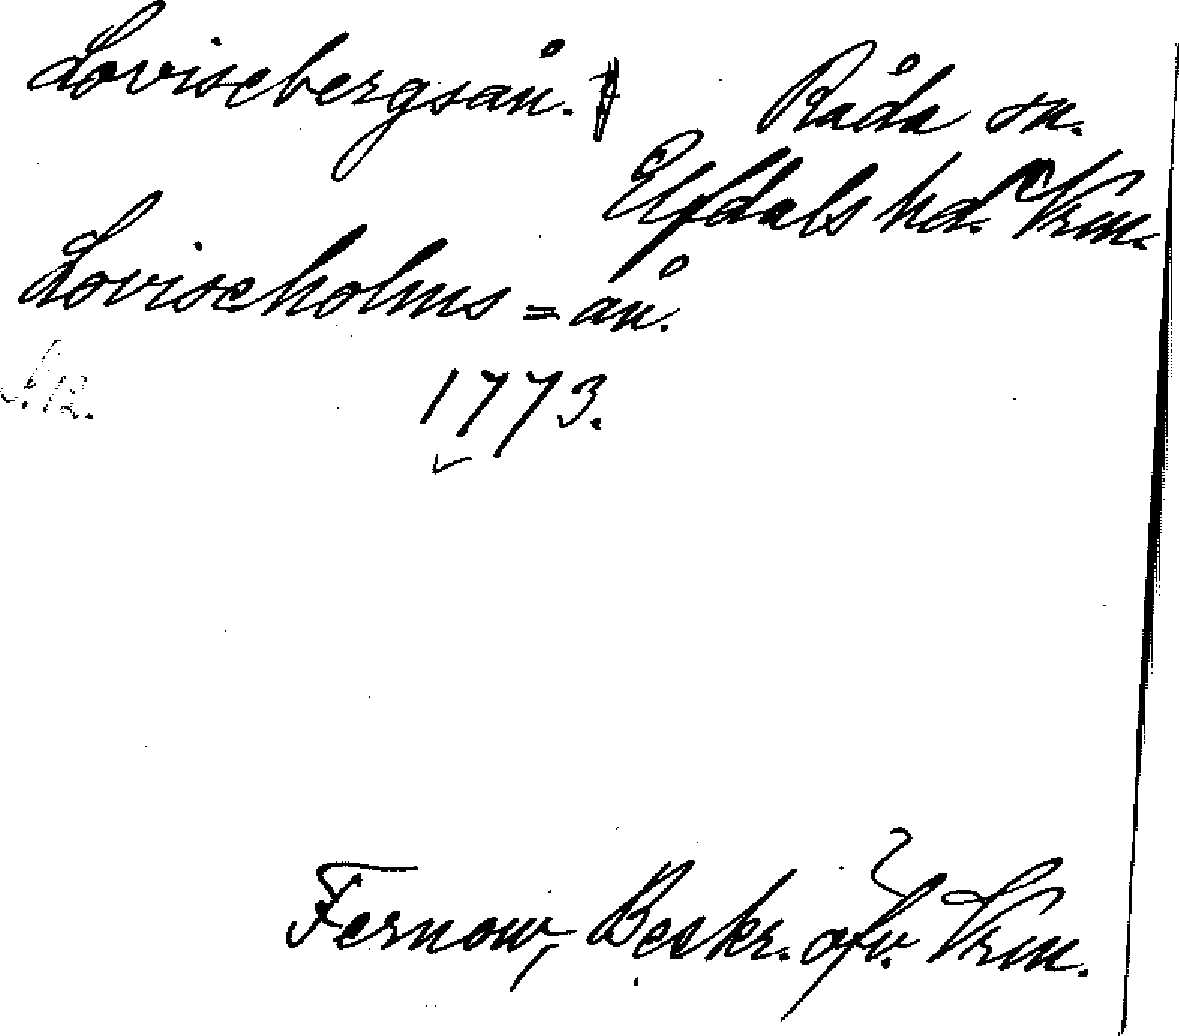 Lovisebergsån.
Råda sn.
Elfdals hd. Vrm.
Loviseholms=ån.
1773.
Fernow, Beskr. öfv. Vrm.